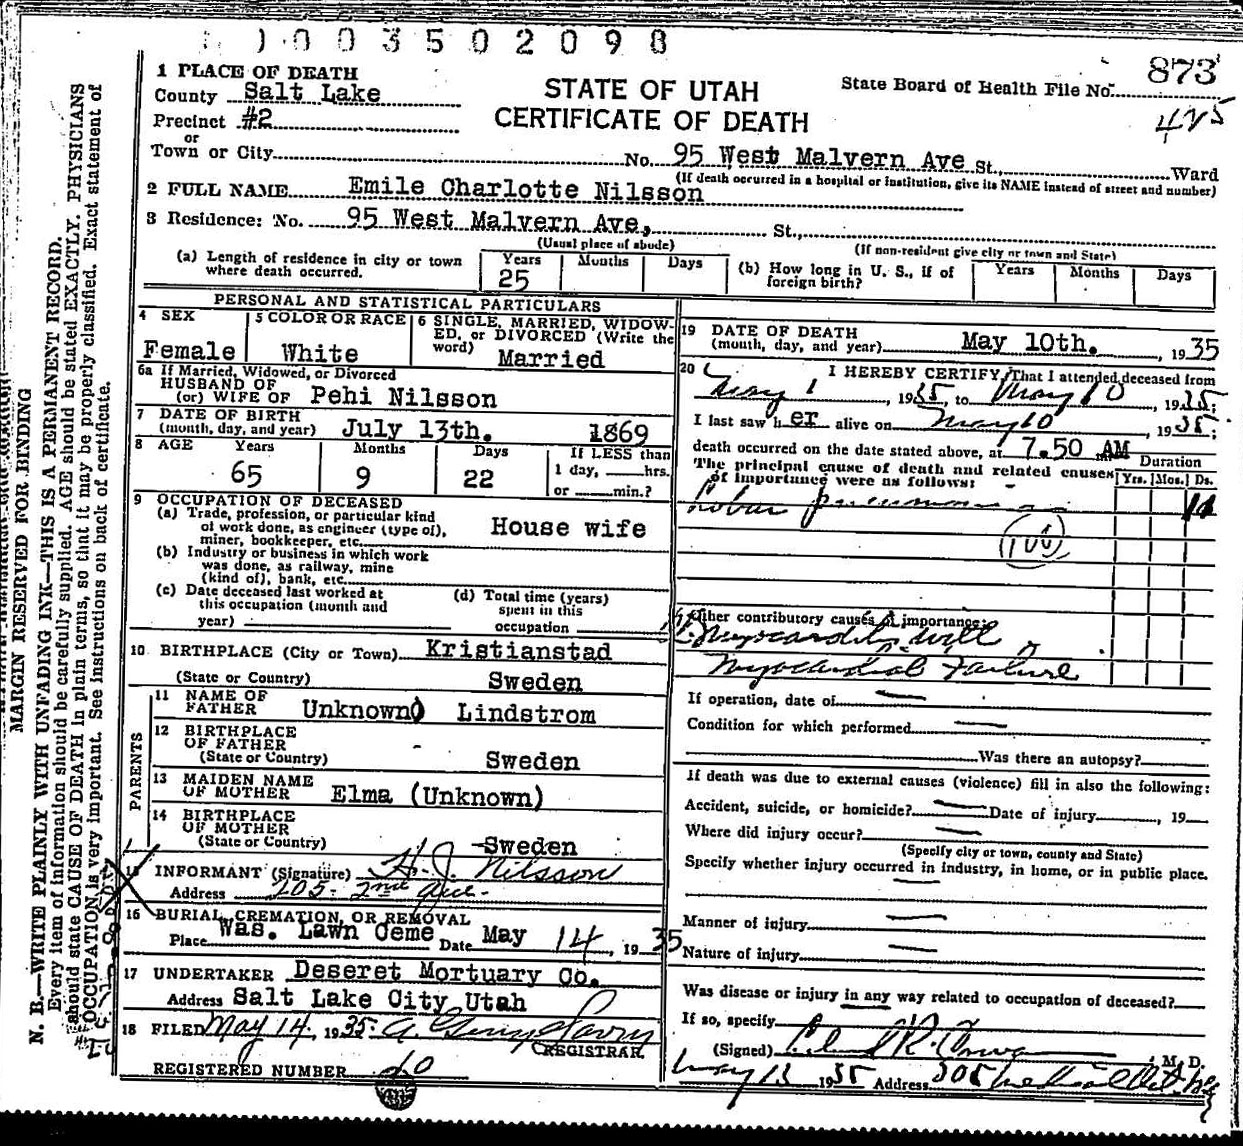 1003502090
873
1 PLACE OF DEATH
County Salt Lake
STATE OF UTAH
State Board of Health File No.
425
Precinct #2
CERTIFICATE OF DEATH
or
Town or City No. 95 West Malvern Ave St., Ward
(If death occurred in a hospital or institution, give its NAME instead of street and number)
2 FULL NAME Emile Charlotte Nilsson
3 Residence: No. 95 West Malvern Ave, St.,
(Usual place of abode) (If non-resident give city or town and State)
(a) Length of residence in city or town where death occurred. Years Months Days
25
(b) How long in U. S., if of foreign birth? Years Months Days
PERSONAL AND STATISTICAL PARTICULARS
4 SEX
Female
5 COLOR OR RACE
White
6 SINGLE, MARRIED, WIDOW-
ED, or DIVORCED (Write the
word) Married
6a If Married, Widowed, or Divorced
HUSBAND OF
(or) WIFE OF Pehi Nilsson
7 DATE OF BIRTH
(month, day, and year) July 13th. 1869
8 AGE Years Months Days If LESS than
65 9 22 1 day, hrs.
or min.?
9 OCCUPATION OF DECEASED
(a) Trade, profession, or particular kind
of work done, as engineer (type of),
miner, bookkeeper, etc. House wife
(b) Industry or business in which work
was done, as railway, mine
(kind of), bank, etc.
(c) Date deceased last worked at
this occupation (month and
year)
(d) Total time (years)
spent in this
occupation
10 BIRTHPLACE (City or Town) Kristianstad
(State or Country) Sweden
PARENTS
11 NAME OF
FATHER Unknown) Lindstrom
12 BIRTHPLACE
OF FATHER
(State or Country) Sweden
13 MAIDEN NAME
OF MOTHER Elma (Unknown)
14 BIRTHPLACE
OF MOTHER
(State or Country) Sweden
15 INFORMANT (Signature) H. J. Nilsson
Address 205- 2nd Ave.
16 BURIAL, CREMATION, OR REMOVAL
Place Was. Lawn Ceme Date May 14, 1935
17 UNDERTAKER Deseret Mortuary Co.
Address Salt Lake City Utah
18 FILED May 14. 1935.
REGISTRAR
REGISTERED NUMBER
19 DATE OF DEATH
(month, day, and year) May 10th. , 1935
20 I HEREBY CERTIFY, That I attended deceased from
May 1, 1935, to May 10, 1935;
I last saw h er alive on May 10, 1935;
death occurred on the date stated above, at 7.50 AM
The principal cause of death and related causes
of importance were as follows:
Duration
Yrs. Mos. Ds.
Lobar pneumonia
(100)
Other contributory causes of importance:
Myocarditis with
Myocardial Failure
If operation, date of
Condition for which performed
Was there an autopsy?
If death was due to external causes (violence) fill in also the following:
Accident, suicide, or homicide? Date of injury , 19
Where did injury occur?
(Specify city or town, county and State)
Specify whether injury occurred in industry, in home, or in public place.
Manner of injury
Nature of injury
Was disease or injury in any way related to occupation of deceased?
If so, specify
(Signed) , M. D.
May 13 1935 Address 305
MARGIN RESERVED FOR BINDING
N. B.—WRITE PLAINLY WITH UNFADING INK—THIS IS A PERMANENT RECORD.
Every item of information should be carefully supplied. AGE should be stated EXACTLY. PHYSICIANS
should state CAUSE OF DEATH in plain terms, so that it may be properly classified. Exact statement of
OCCUPATION is very important. See instructions on back of certificate.